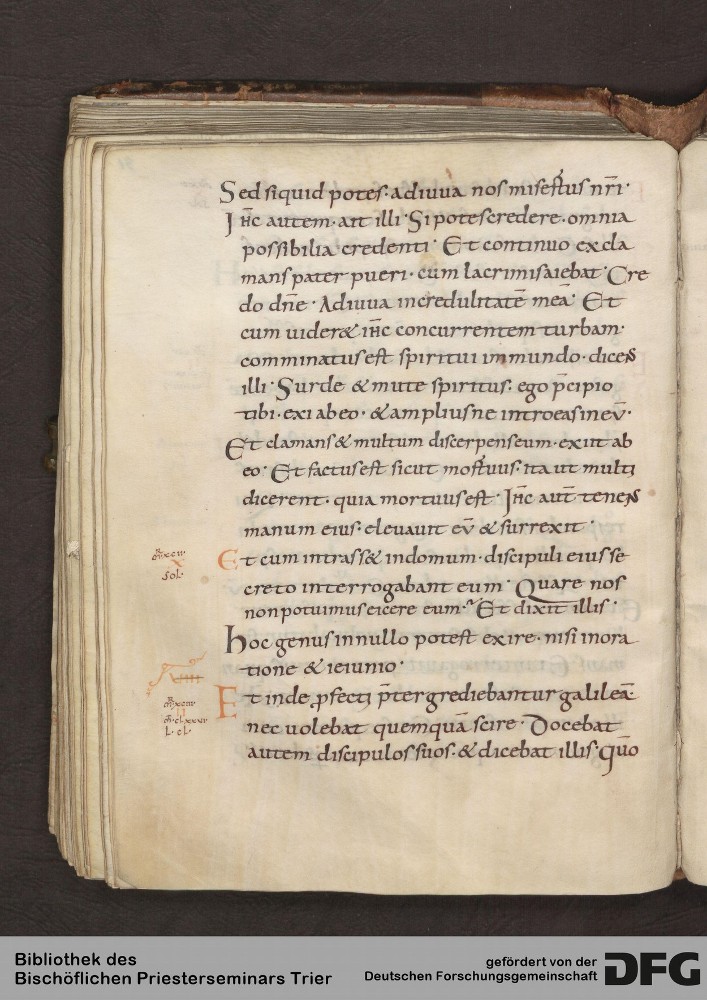 Sed siquid potes· adiuua nos misertus nr̄i·
Ih̄c autem· ait illi· Si potes credere· omnia
possibilia credenti· Et continuo excla
mans pater pueri· cum lacrimis aiebat· Cre
do dn̄e· Adiuua incredulitatē meā· Et
cum uider& ih̄c concurrentem turbam·
comminatus est spiritui inmundo· dicens
illi· Surde & mute spiritus· ego p̄cipio
tibi· exi ab eo· & amplius ne introeas in eū·
Et clamans & multum discerpens eum· exiit ab
eo· Et factus est sicut mortuus· ita ut multi
dicerent· quia mortuus est· Ih̄c aut̄ tenens
manum eius· eleuauit eū & surrexit·
Et cum intrass& in domum· discipuli eius se
creto interrogabant eum· Quare nos
non potuimus eicere eum· Et dixit illis·
hoc genus in nullo potest exire· nisi in ora
tione & ieiunio·
Et inde ꝓfecti p̄tergrediebantur galileā·
nec uolebat quemquā scire· Docebat
autem discipulos suos· & dicebat illis· quō
sol·
Bibliothek des
Bischöflichen Priesterseminars Trier
gefördert von der
Deutschen Forschungsgemeinschaft
DFG